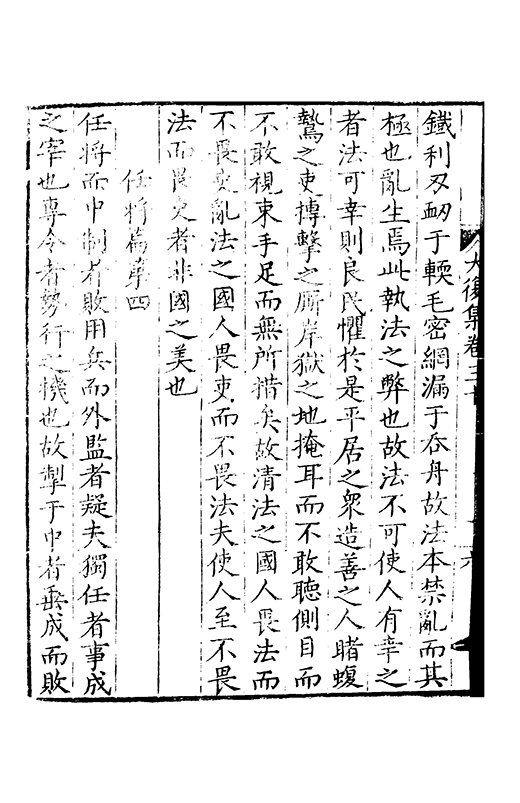 鐵利刃衂于輭毛密綱漏于吞舟故法本禁亂而其
極也亂生焉此執法之弊也故法不可使人有幸之
者法可幸則良民懼於是平居之衆造善之人睹蝮
鷙之吏摶擊之厮岸獄之地掩耳而不敢聽側目而
不敢視束手足而無所措矣故清法之國人畏法而
不畏吏亂法之國人畏吏而不畏法夫使人至不畏
法而畏吏者非國之美也
任將篇第四
任將而中制者敗用兵而外監者疑夫獨任者事成
之宰也專令者勢行之機也故掣于中者垂成而敗
太復集卷三十
六